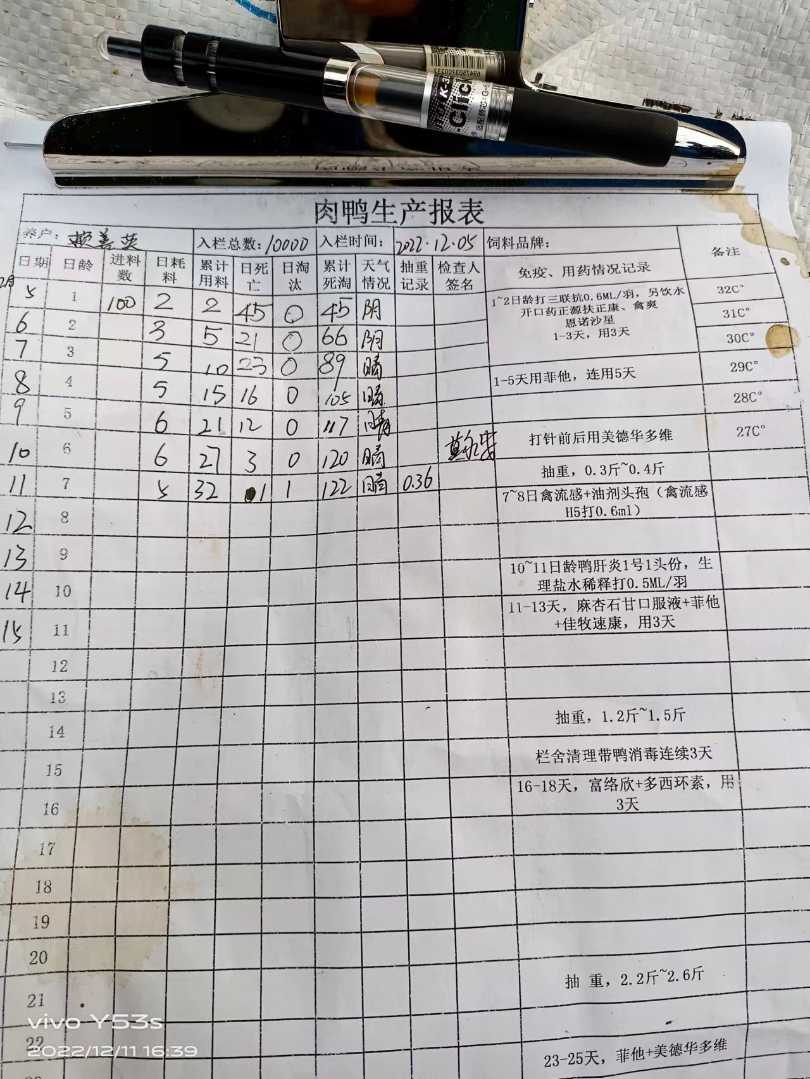 K-3
Click
肉鸭生产报表
养户: 入栏总数:10000 入栏时间: 2022.12.05 饲料品牌:
日期 日龄 进料数 日耗料 累计用料 日死亡 日淘汰 累计死淘 天气情况 抽重记录 检查人签名 免疫、用药情况记录 备注
5 1 100 2 2 45 0 45 阴 1~2日龄打三联抗0.6ML/羽，另饮水 32C°
开口药正源扶正康、禽爽
6 2 3 5 21 0 66 阴 恩诺沙星 31C°
1-3天，用3天
7 3 5 10 23 0 89 晴 30C°
8 4 5 15 16 0 105 晴 1-5天用菲他，连用5天 29C°
9 5 6 21 12 0 117 晴 28C°
10 6 6 27 3 0 120 晴 打针前后用美德华多维 27C°
11 7 5 32 1 1 122 晴 0.36 抽重，0.3斤~0.4斤
12 8 7~8日禽流感+油剂头孢（禽流感
H5打0.6ml）
13 9
14 10 10~11日龄鸭肝炎1号1头份，生
理盐水稀释打0.5ML/羽
15 11 11-13天，麻杏石甘口服液+菲他
+佳牧速康，用3天
12
13
14 抽重，1.2斤~1.5斤
15 栏舍清理带鸭消毒连续3天
16 16-18天，富络欣+多西环素，用
3天
17
18
19
20
21 抽 重，2.2斤~2.6斤
22
23-25天，菲他+美德华多维
vivo Y53s
2022/12/11 16:39